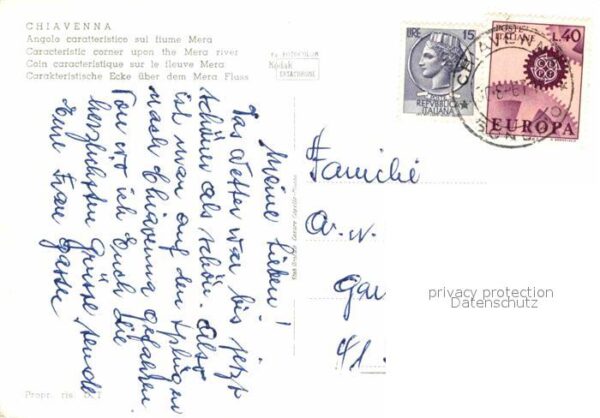 CHIAVENNA
Angolo caratteristico sul fiume Mera
Characteristic corner upon the Mera river
Coin caractéristique sur le fleuve Mera
Charakteristische Ecke über dem Mera Fluss
Kodak
EKTACHROME
LIRE 15
REPVBBLICA
ITALIANA
ITALIANE L.40
EUROPA
CHIAVENNA
Meine Lieben!
Das Wetter war bis jetzt
schöner als schön. Also
ist man auf den Splügen
nach Chiavenna gefahren
von wo ich Euch die
herzlichsten Grüsse sende
Eure Frau
Familie
a.w.
Gar
41
privacy protection
Datenschutz
Propr. ris.